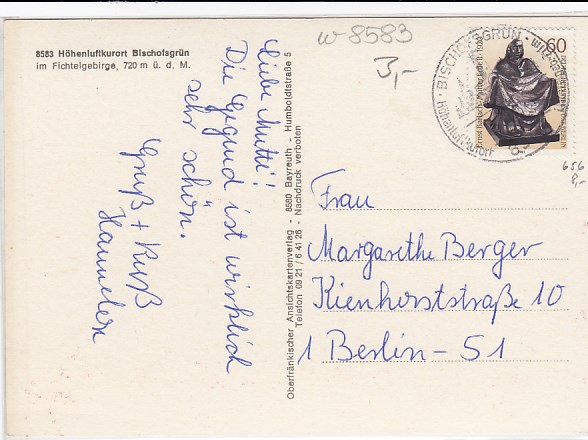 8583 Höhenluftkurort Bischofsgrün
im Fichtelgebirge, 720 m ü. d. M.
w-8583
3,-
Liebe Mutti!
Die Gegend ist wirklich
sehr schön.
Gruß + Kuß
Hannelore
Oberfränkischer Ansichtskartenverlag - 8580 Bayreuth - Humboldtstraße 5
Telefon 09 21 / 6 41 26 - Nachdruck verboten
BISCHOFSGRÜN
Höhenluftkurort
60
656
8,-
Frau
Margarethe Berger
Kienhorststraße 10
1 Berlin - 51